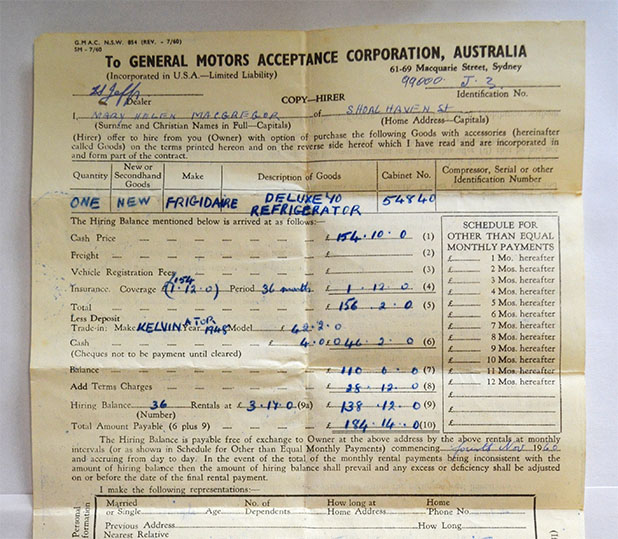 G.M.A.C. N.S.W. 854 (REV. - 7/60)
5M - 7/60
To GENERAL MOTORS ACCEPTANCE CORPORATION, AUSTRALIA
(Incorporated in U.S.A.—Limited Liability) 61-69 Macquarie Street, Sydney
99000 J. 2
Dealer COPY—HIRER Identification No.
I, MARY HELEN MACGREGOR of SHOALHAVEN St
(Surname and Christian Names in Full—Capitals) (Home Address—Capitals)
(Hirer) offer to hire from you (Owner) with option of purchase the following Goods with accessories (hereinafter
called Goods) on the terms printed hereon and on the reverse side hereof which I have read and are incorporated in
and form part of the contract.
Quantity New or Secondhand Goods Make Description of Goods Cabinet No. Compressor, Serial or other Identification Number
ONE NEW FRIGIDAIRE DELUXE 40 REFRIGERATOR 54840
The Hiring Balance mentioned below is arrived at as follows:—
Cash Price — £ 154.10.0 (1)
Freight — £ (2)
Vehicle Registration Fees £ (3)
Insurance. Coverage £ (1.12.0) Period 36 months £ 1.12.0 (4)
Total — £ 156.2.0 (5)
Less Deposit
Trade-in: Make KELVINATOR Year 1948 Model £ 42.2.0
Cash — £ 4.0.0 46.2.0 (6)
(Cheques not to be payment until cleared)
Balance — £ 110.0.0 (7)
Add Terms Charges — £ 28.12.0 (8)
Hiring Balance 36 Rentals at £ 3.17.0 (9a) £ 138.12.0 (9)
(Number)
Total Amount Payable (6 plus 9) £ 184.14.0 (10)
SCHEDULE FOR
OTHER THAN EQUAL
MONTHLY PAYMENTS
£ 1 Mo. hereafter
£ 2 Mos. hereafter
£ 3 Mos. hereafter
£ 4 Mos. hereafter
£ 5 Mos. hereafter
£ 6 Mos. hereafter
£ 7 Mos. hereafter
£ 8 Mos. hereafter
£ 9 Mos. hereafter
£ 10 Mos. hereafter
£ 11 Mos. hereafter
£ 12 Mos. hereafter
£
£
The Hiring Balance is payable free of exchange to Owner at the above address by the above rentals at monthly
intervals (or as shown in Schedule for Other than Equal Monthly Payments) commencing fourth Nov 1960
and accruing from day to day. In the event of the total of the monthly rental payments being inconsistent with the
amount of hiring balance then the amount of hiring balance shall prevail and any excess or deficiency shall be adjusted
on or before the date of the final rental payment.
I make the following representations:—
Personal Information
Married or Single Age No. of Dependents How long at Home Address Home 'Phone No.
Previous Address How Long
Nearest Relative